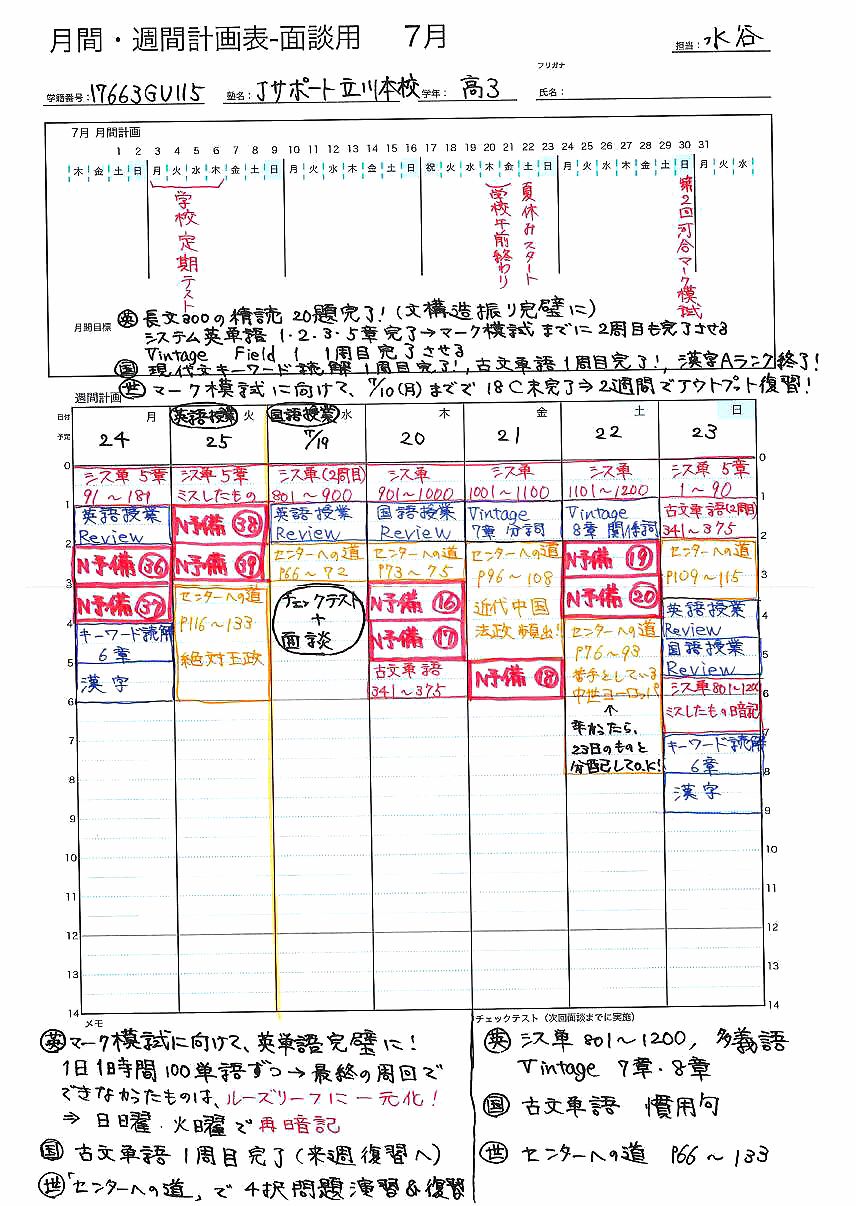 月間・週間計画表-面談用 7月
担当: 水谷
学籍番号: 17663GU115 塾名: Jサポート立川本校 学年: 高3 フリガナ 氏名:
7月 月間計画
1 2 3 4 5 6 7 8 9 10 11 12 13 14 15 16 17 18 19 20 21 22 23 24 25 26 27 28 29 30 31
木 金 土 日 月 火 水 木 金 土 日 月 火 水 木 金 土 日 祝 火 水 木 金 土 日 月 火 水 木 金 土 日 月 火 水
学校定期テスト
学校午前終わり
夏休みスタート
第2回河合マーク模試
月間目標
英 長文300の精読 20題完了!(文構造振り完璧に)
システム英単語 1・2・3・5章完了→マーク模試までに2周目も完了させる
Vintage Field 1 1周目完了させる
国 現代文キーワード読解1周目完了!,古文単語1周目完了!,漢字Aランク終了!
世 マーク模試に向けて、7/10(月)までで18C末完了⇒2週間でアウトプット復習!
週間計画
日付 月 英語授業 火 国語授業 水 木 金 土 日
予定 24 25 7/19 20 21 22 23
シス単 5章
91~181
英語授業
Review
N予備 36
N予備 37
キーワード読解
6章
漢字
シス単 5章
ミスしたもの
N予備 38
N予備 39
センターへの道
P116~133
絶対王政
シス単(2周目)
801~900
英語授業
Review
センターへの道
P66~72
チェックテスト
+
面談
シス単
901~1000
国語授業
Review
センターへの道
P73~75
N予備 16
N予備 17
古文単語
341~375
シス単
1001~1100
Vintage
7章 分詞
センターへの道
P96~108
近代中国
法政頻出!
N予備 18
シス単
1101~1200
Vintage
8章 関係詞
N予備 19
N予備 20
センターへの道
P76~93
苦手としている
中世ヨーロッパ
↑
辛かったら、
23日のものと
分配してO.K!
シス単 5章
1~90
古文単語(2周目)
341~375
センターへの道
P109~115
英語授業
Review
国語授業
Review
シス単801~1200
ミスしたもの暗記
キーワード読解
6章
漢字
0 1 2 3 4 5 6 7 8 9 10 11 12 13 14
0 1 2 3 4 5 6 7 8 9 10 11 12 13 14
メモ
英 マーク模試に向けて、英単語完璧に!
1日1時間100単語ずつ→最終の周回で
できなかったものは、ルーズリーフに一元化!
⇒日曜・火曜で再暗記
国 古文単語1周目完了(来週復習へ)
世 「センターへの道」で4択問題演習&復習
チェックテスト(次回面談までに実施)
英 シス単 801~1200, 多義語
Vintage 7章・8章
国 古文単語 慣用句
世 センターへの道 P66~133